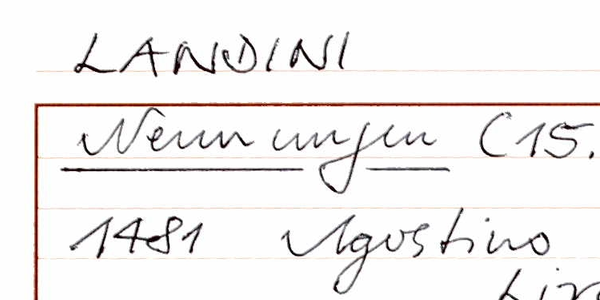 LANDINI
Nennungen C15.
1481 Agostino